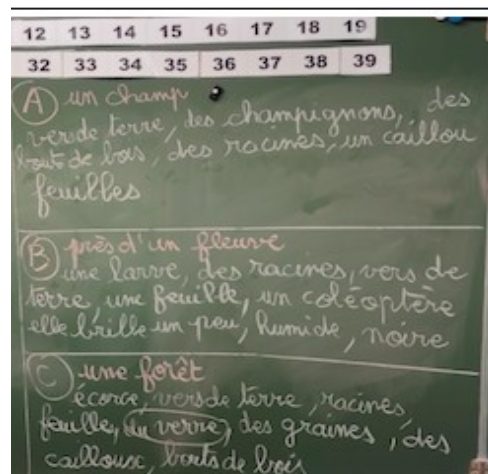 12 13 14 15 16 17 18 19
32 33 34 35 36 37 38 39
A un champ
vers de terre, des champignons, des
bouts de bois, des racines, un caillou
feuilles
B près d'un fleuve
une larve, des racines, vers de
terre, une feuille, un coléoptère
elle brille un peu, humide, noire
C une forêt
écorce, vers de terre, racines,
feuille, du verre, des graines, des
cailloux, bouts de bois